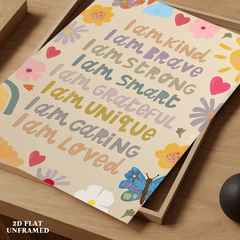 I am KIND
I am BRAVE
I am STRONG
I am SMART
I am GRATEFUL
I am UNIQUE
I am CARING
I am LOVED
2D FLAT
UNFRAMED